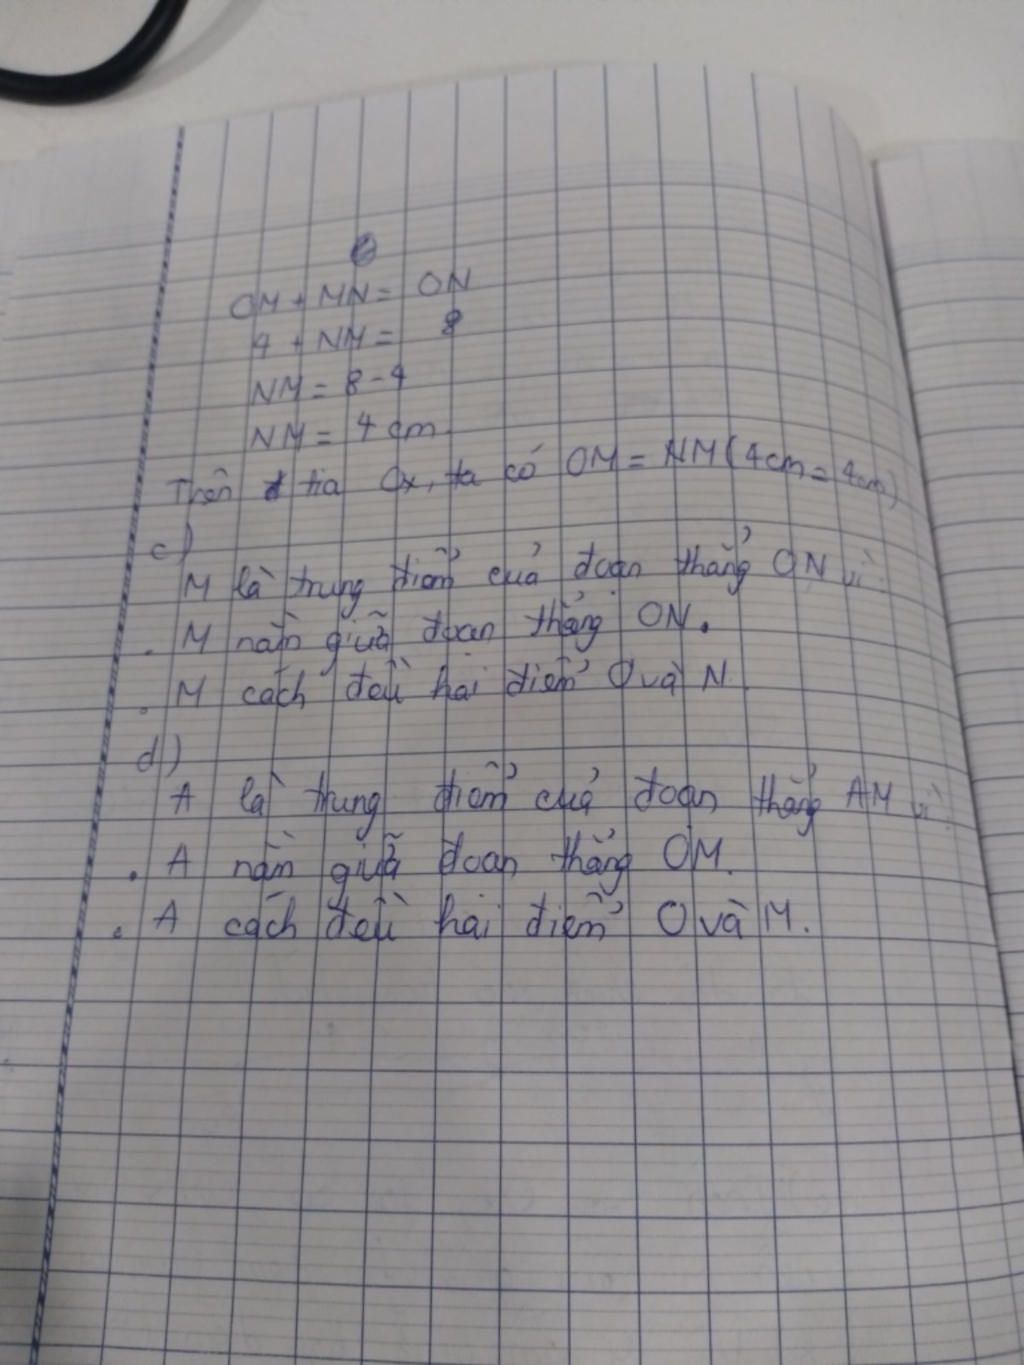 OM + MN = ON
4 + NM = 8
NM = 8 - 4
NM = 4 cm
Trên tia Ox, ta có OM = NM (4cm = 4cm)
c)
M là trung điểm của đoạn thẳng ON vì:
. M nằm giữa đoạn thẳng ON.
. M cách đều hai điểm O và N.
d)
A là trung điểm của đoạn thẳng AM vì:
. A nằm giữa đoạn thẳng OM.
. A cách đều hai điểm O và M.